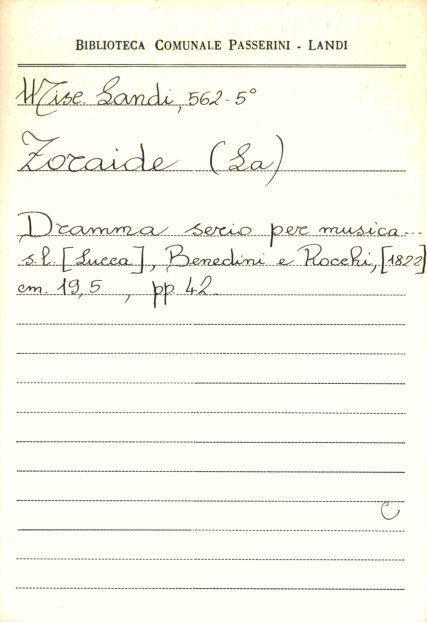 BIBLIOTECA COMUNALE PASSERINI - LANDI
Misc. Landi, 562-5°
Zoraide (La)
Dramma serio per musica...
s.l. [Lucca], Benedini e Rocchi, [1822]
cm. 19,5 , pp. 42.
C